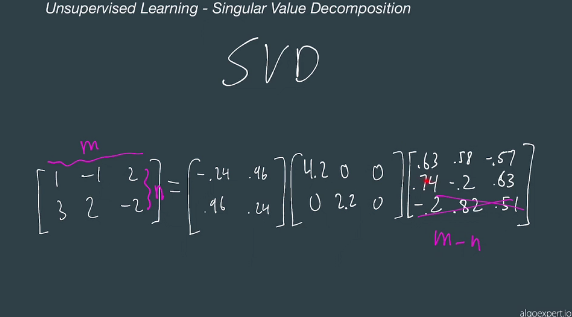 Unsupervised Learning - Singular Value Decomposition
SVD
m
[1 -1 2
3 2 -2] n = [-.24 .96
.96 .24] [4.2 0 0
0 2.2 0] [.63 .58 -.57
.74 -.2 .63
-.2 .82 .51]
m-n
algoexpert.io